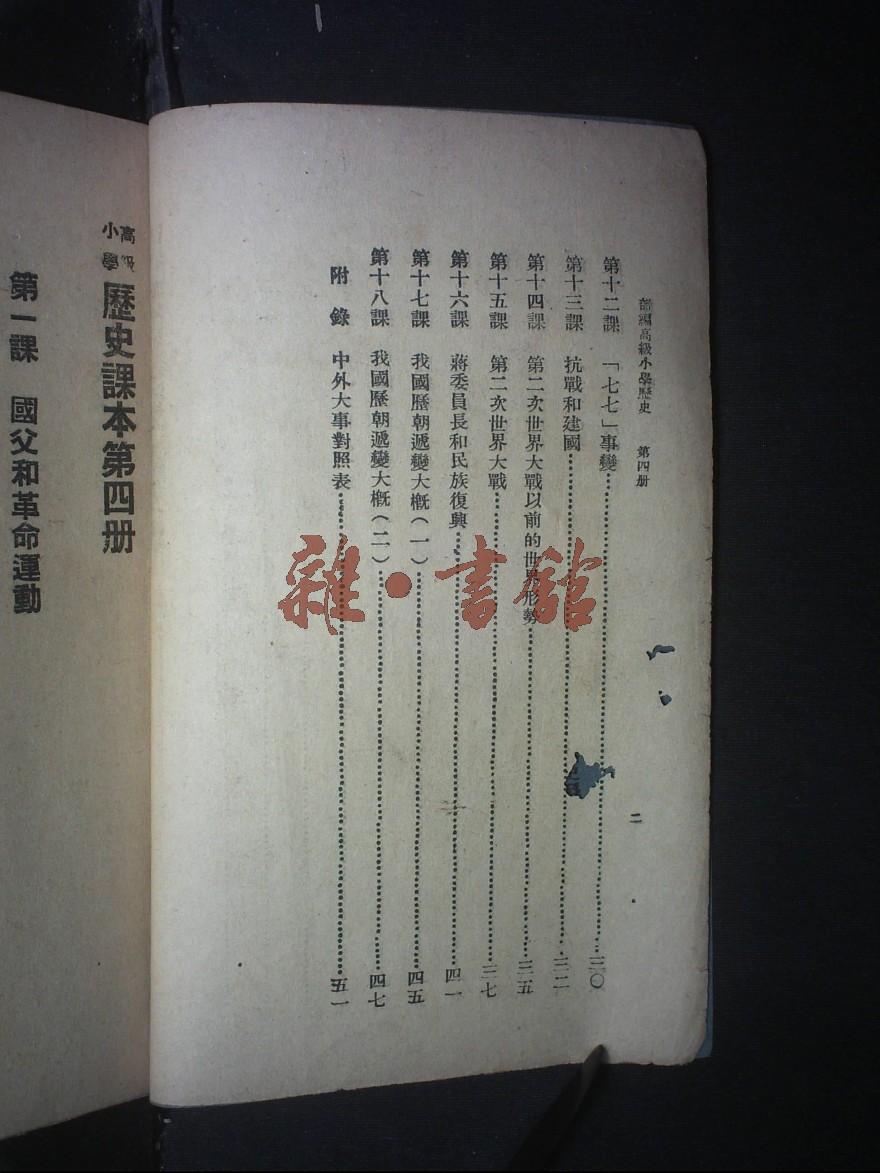 部編高級小學歷史 第四册
二
第十二課 「七七」事變 三〇
第十三課 抗戰和建國 三二
第十四課 第二次世界大戰以前的世界形勢 三五
第十五課 第二次世界大戰 三七
第十六課 蔣委員長和民族復興 四一
第十七課 我國歷朝遞變大概(一) 四五
第十八課 我國歷朝遞變大概(二) 四七
附錄 中外大事對照表 五一
高級小學 歷史課本第四册
第一課 國父和革命運動
雜·書館